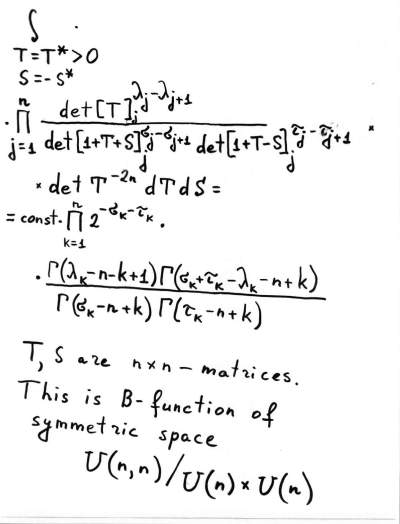 ∫
T=T*>0
S=-S*
· ∏_{j=1}^{n} det[T]_j^{λ_j-λ_{j+1}} / (det[1+T+S]_j^{σ_j-σ_{j+1}} det[1+T-S]_j^{τ_j-τ_{j+1}}) ×
× det T^{-2n} dT dS =
= const· ∏_{k=1}^{n} 2^{-σ_k-τ_k} ·
· Γ(λ_k-n-k+1) Γ(σ_k+τ_k-λ_k-n+k) / (Γ(σ_k-n+k) Γ(τ_k-n+k))
T, S are n×n-matrices.
This is B-function of
symmetric space
U(n,n)/U(n)×U(n)